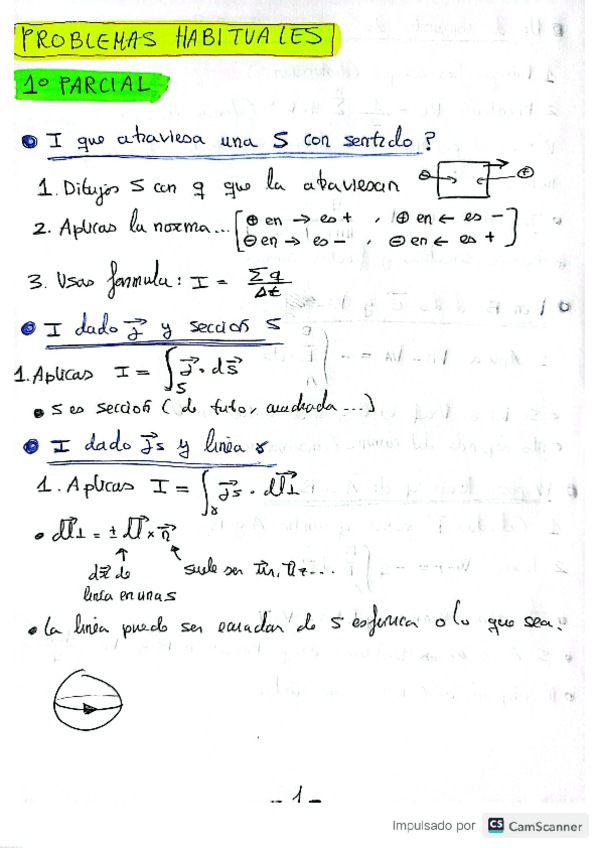 PROBLEMAS HABITUALES
1º PARCIAL
I que atraviesa una S con sentido?
1. Dibujas S con q que la atraviesan
⊖ ⊕
2. Aplicas la norma... [⊕ en → es +, ⊕ en ← es -
⊖ en → es -, ⊖ en ← es +]
3. Usas formula: I = Σq / Δt
I dado J⃗ y sección S
1. Aplicas I = ∫_S J⃗ · dS⃗
• S es sección (de tubo, cuadrada ...)
I dado J⃗s y linea γ
1. Aplicas I = ∫_γ J⃗s · dl⃗⊥
• dl⃗⊥ = ± dl⃗ × n⃗
dl⃗ de
linea en una S
suele ser u⃗r, u⃗z...
• La linea puede ser ecuador de S esferica o lo que sea.
- 1 -
Impulsado por CS CamScanner